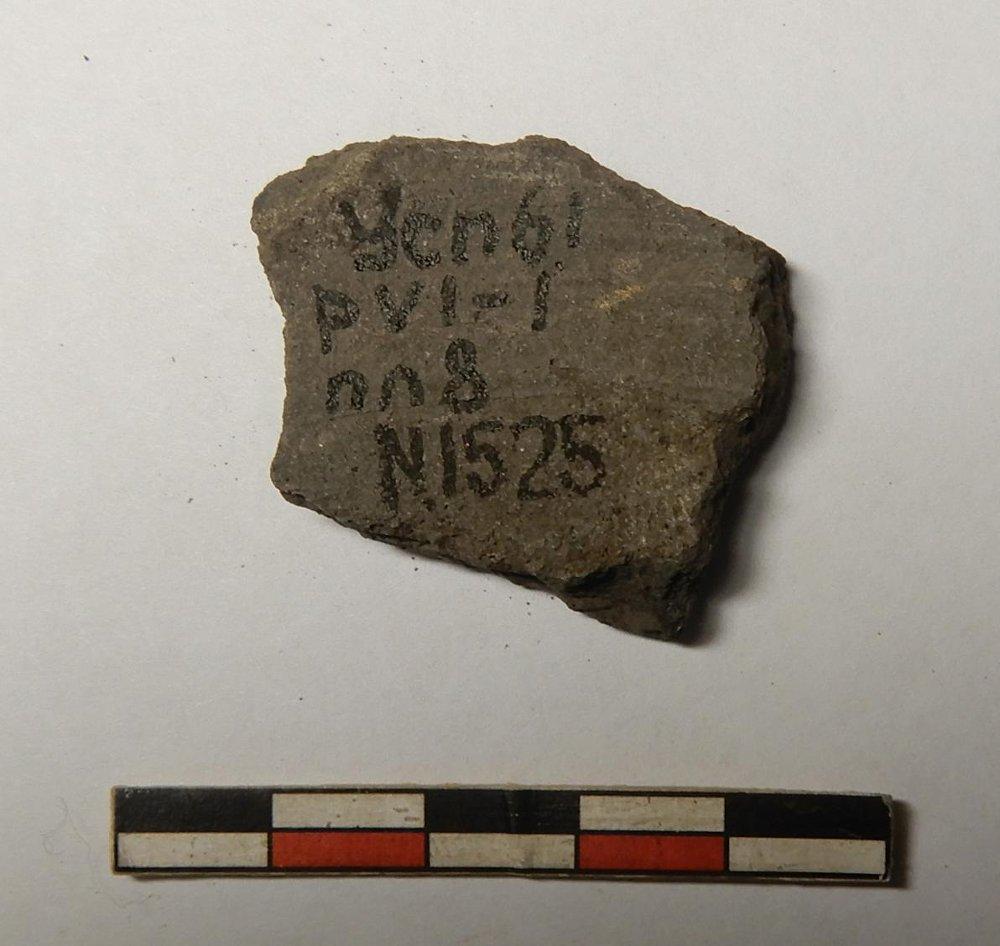 Усп61
рVI-1
пл8
N1525